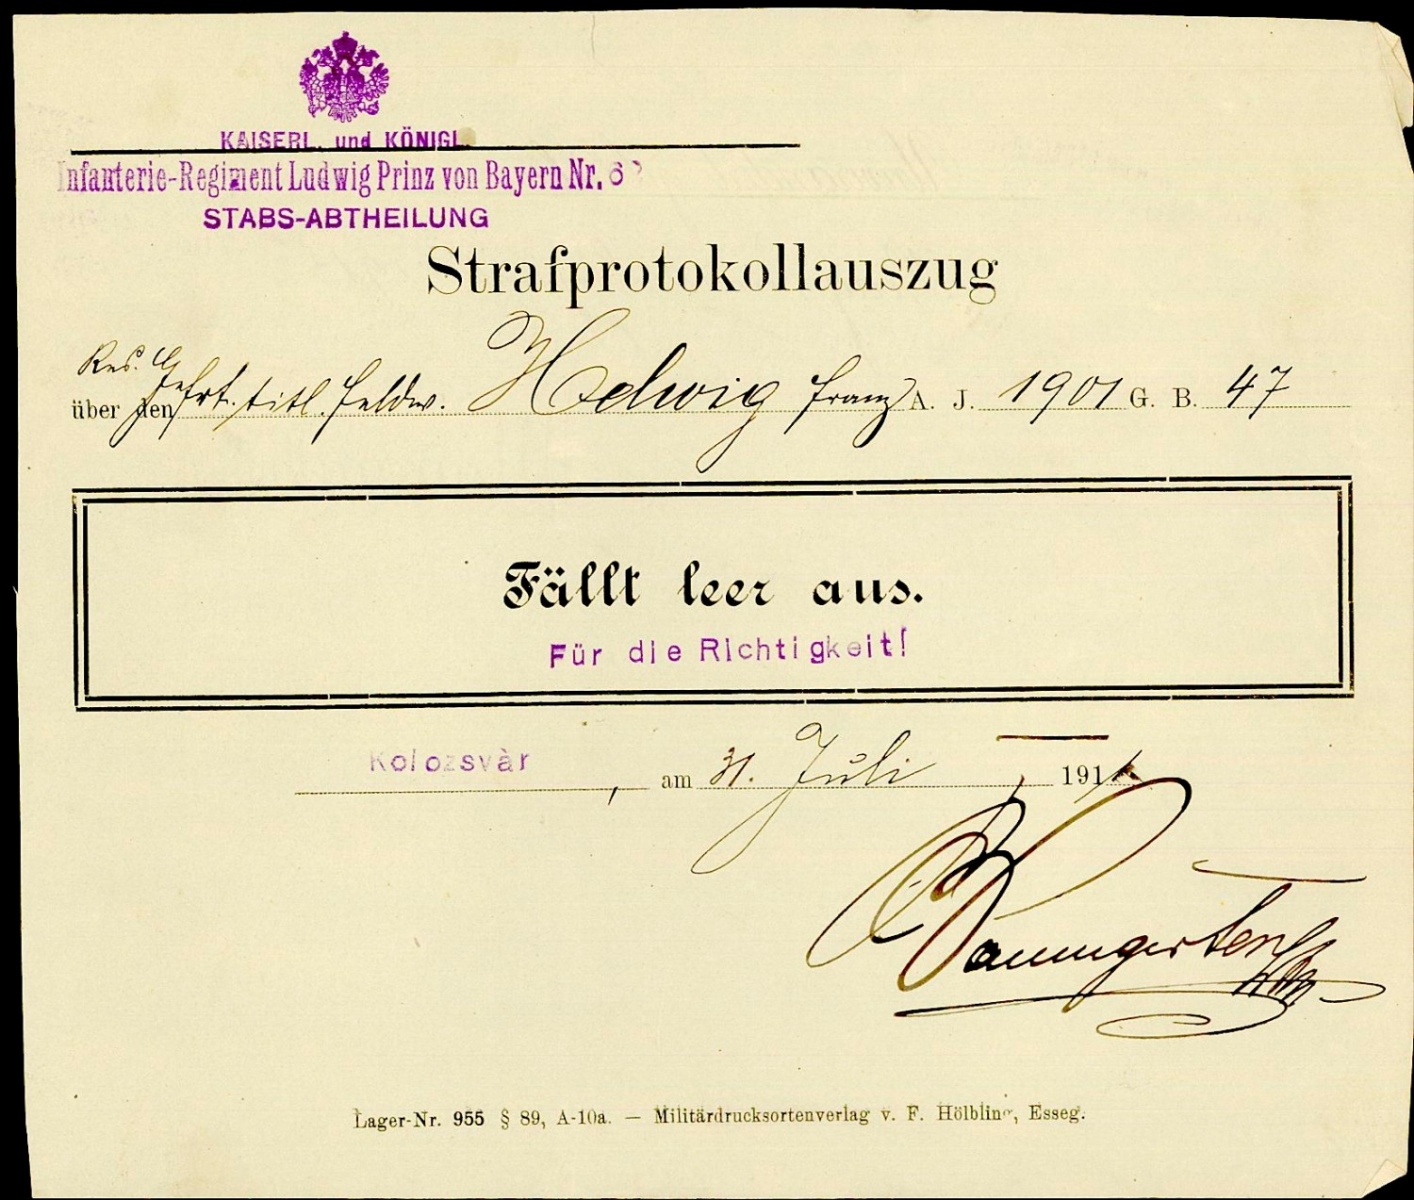 KAISERL. und KÖNIGL.
Infanterie-Regiment Ludwig Prinz von Bayern Nr. 62
STABS-ABTHEILUNG
Strafprotokollauszug
Res. Gefrt. titl. Feldw. Hedwig Franz
über den A. J. 1901 G. B. 47
Fällt leer aus.
Für die Richtigkeit!
Kolozsvàr, am 31. Juli 191
Baumgarten
Lager-Nr. 955 § 89, A-10a. — Militärdrucksortenverlag v. F. Hölbling, Esseg.